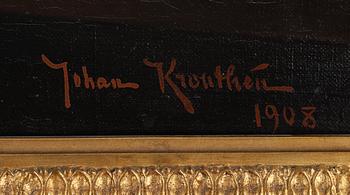 Johan Krouthén
1908